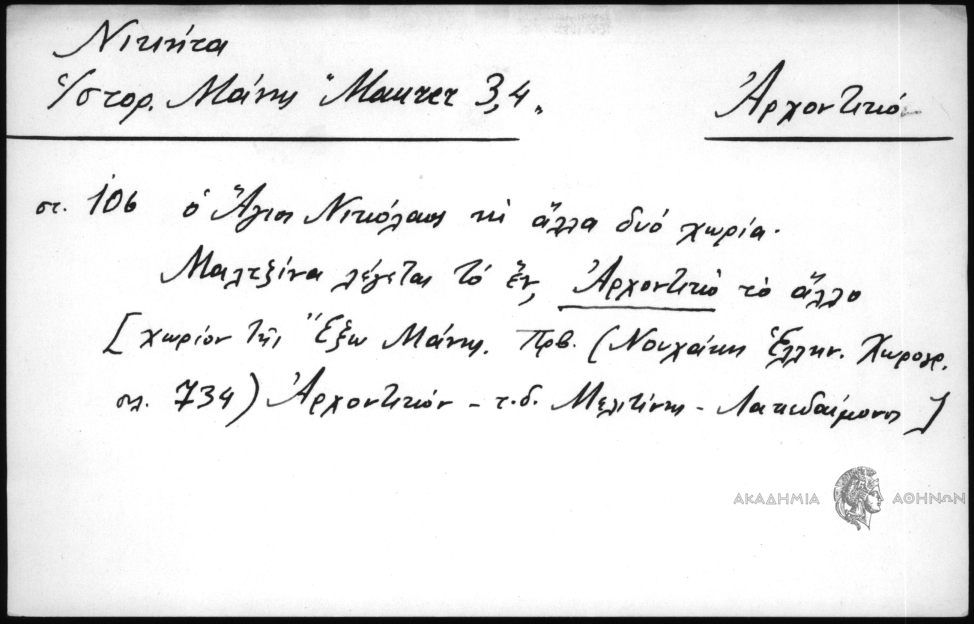 Νικήτα
Ἱστορ. Μάνης "Μαurer 3,4„
Ἀρχοντικό
στ. 106 ὁ Ἅγιος Νικόλαος κὶ ἄλλα δυό χωρία.
Μαλτζίνα λέγεται τό ἕν, Ἀρχοντικὸ τὸ ἄλλο
[χωρίον τῆς Ἔξω Μάνης. Πρβ. (Νουχάκης Ἑλλην. Χωρογρ.
σελ. 734) Ἀρχοντικόν - τ.δ. Μελιτίνης - Λακεδαίμονος]
ΑΚΑΔΗΜΙΑ ΑΘΗΝΩΝ